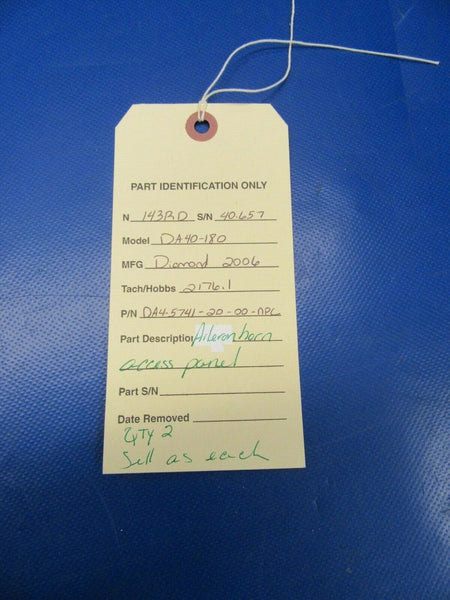 PART IDENTIFICATION ONLY
N 143RD S/N 40.657
Model DA40-180
MFG Diamond 2006
Tach/Hobbs 2176.1
P/N DA4-5741-20-00-NPL
Part Description Aileron horn
access panel
Part S/N
Date Removed
QTY 2
Sell as each